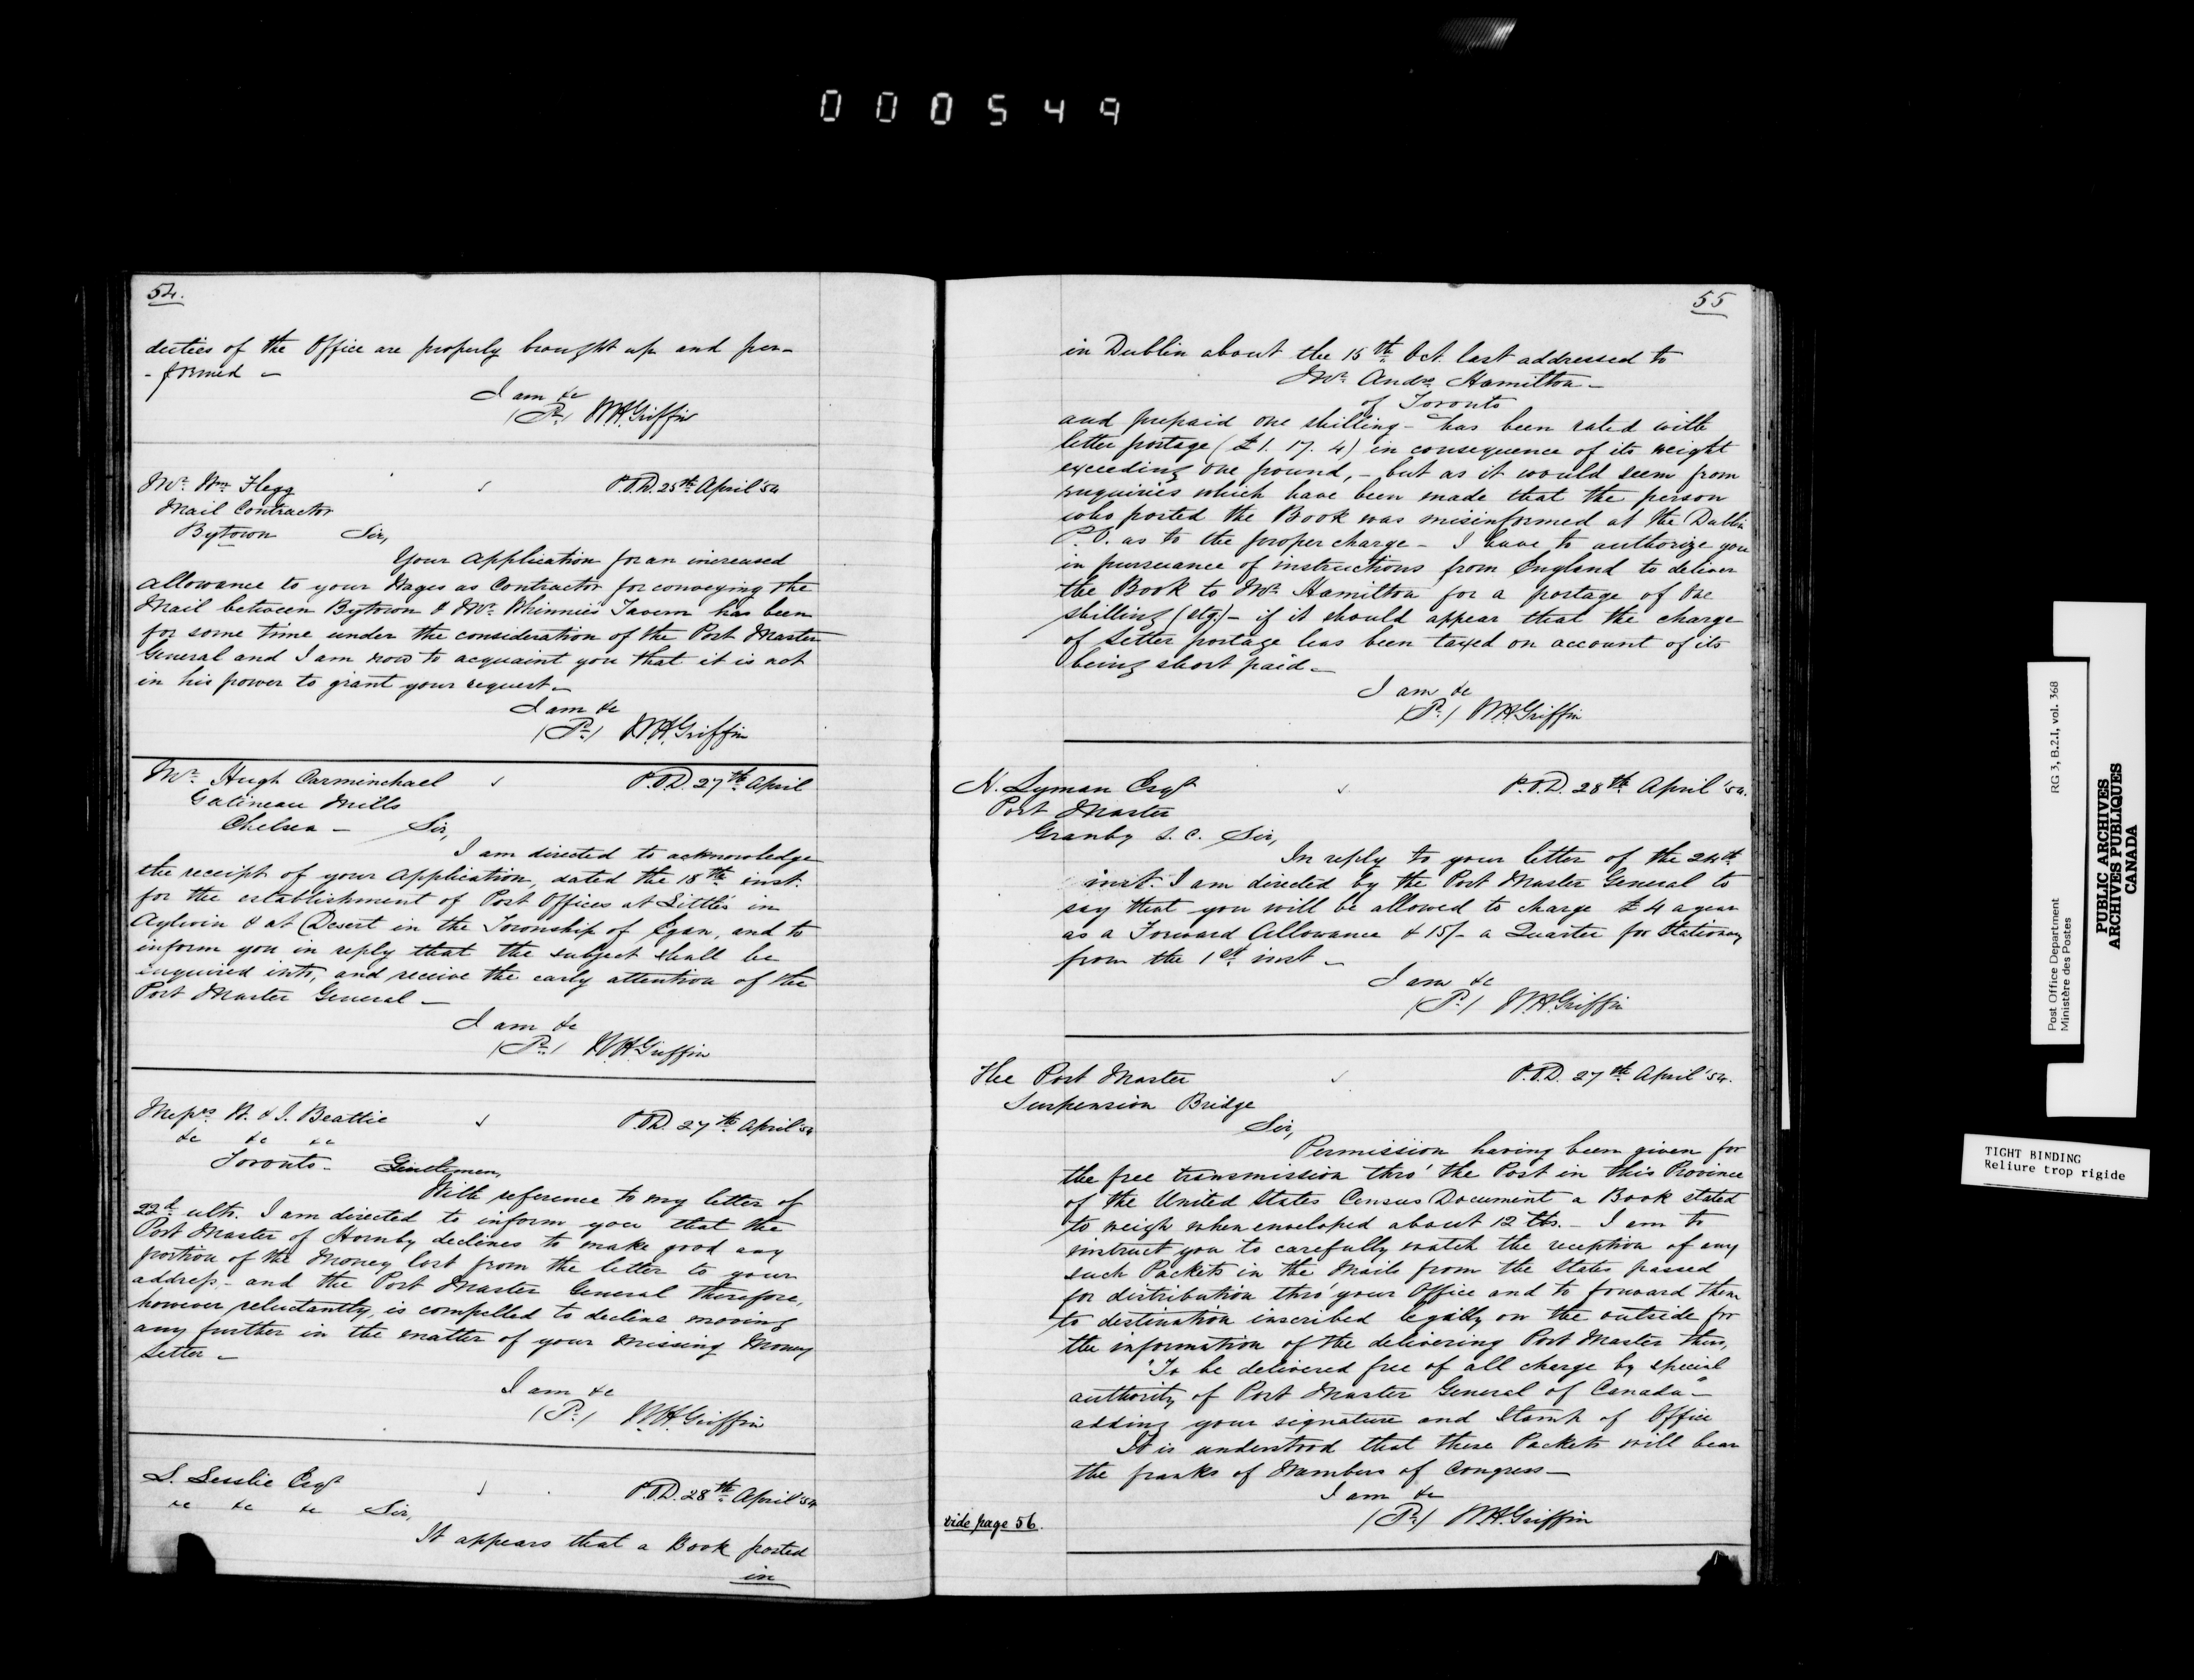 000549
54.
duties of the Office are properly brought up and per-
- formed -
I am &c
(Pr.) W.H.Griffin
Mr. Wm. Flegg
P.O.D. 25th April '54
Mail Contractor
Bytown Sir,
Your Application for an increased
allowance to your Wages as Contractor for conveying the
Mail between Bytown & McWhinnie's Tavern has been
for some time under the consideration of the Post Master
General and I am now to acquaint you that it is not
in his power to grant your request -
I am &c
(Pr.) W.H.Griffin
Mr. Hugh Carminchael
P.O.D. 27th April
Gatineau Mills
Chelsea - Sir,
I am directed to acknowledge
the receipt of your Application, dated the 18th inst.
for the establishment of Post Offices at Little's in
Aylwin & at Desert in the Township of Egan, and to
inform you in reply that the subject shall be
inquired into, and receive the early attention of the
Post Master General -
I am &c
(Pr.) W.H.Griffin
Messrs. & J. Beattie
P.O.D. 27th April '54
&c &c &c
Toronto - Gentlemen,
With reference to my letter of
22d ulto. I am directed to inform you that the
Post Master of Hornby declines to make good any
portion of the Money lost from the letter to your
address - and the Post Master General therefore,
however reluctantly, is compelled to decline moving
any further in the matter of your missing Money
Letter -
I am &c
(Pr.) W.H.Griffin
Lesslie Esqr
P.O.D. 28th April '54
&c &c &c Sir,
It appears that a Book posted
in
55
in Dublin about the 15th Oct. last addressed to
Mr. Andw. Hamilton -
of Toronto
and prepaid one shilling - has been rated with
letter postage (£1. 17. 4) in consequence of its weight
exceeding one pound, - but as it would seem from
enquiries which have been made that the person
who posted the Book was misinformed at the Dublin
P.O. as to the proper charge - I have to authorize you
in pursuance of instructions from England to deliver
the Book to Mr. Hamilton for a postage of One
shilling (stg.) - if it should appear that the charge
of Letter postage has been taxed on account of its
being short paid -
I am &c
(Pr.) W.H.Griffin
H. Lyman Esqr
P.O.D. 28th April '54.
Post Master
Granby L. C. Sir,
In reply to your letter of the 24th
inst. I am directed by the Post Master General to
say that you will be allowed to charge £4 a year
as a Forward Allowance & 15/- a Quarter for Stationery
from the 1st inst -
I am &c
(Pr.) W.H.Griffin
The Post Master
P.O.D. 27th April '54.
Suspension Bridge
Sir,
Permission having been given for
the free transmission thro' the Post in this Province
of the United States Census Document a Book stated
to weigh when enveloped about 12 lbs. - I am to
instruct you to carefully watch the reception of any
such Packets in the Mails from the States passed
for distribution thro' your Office and to forward them
to destination inscribed legibly on the outside for
the information of the delivering Post Master thus,
"To be delivered free of all charge by special
authority of Post Master General of Canada" -
adding your signature and Stamp of Office
It is understood that these Packets will bear
the franks of Members of Congress -
I am &c
(Pr.) W.H.Griffin
vide page 56.
Post Office Department
Ministère des Postes
RG 3, B.2.I, vol. 368
PUBLIC ARCHIVES
ARCHIVES PUBLIQUES
CANADA
TIGHT BINDING
Reliure trop rigide